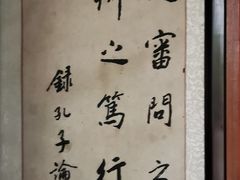 審問之
之篤行
錄孔子論